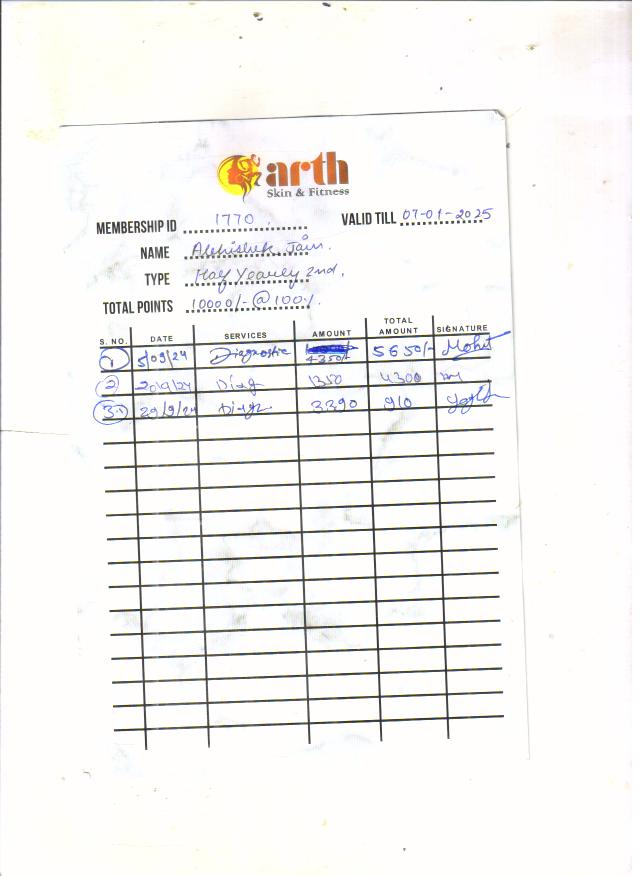 arth
Skin & Fitness
MEMBERSHIP ID 1770 VALID TILL 07-01-2025
NAME Abhishek Jain.
TYPE Half Yearly 2nd.
TOTAL POINTS 10000/- @ 100%.
S. NO. DATE SERVICES AMOUNT TOTAL AMOUNT SIGNATURE
1 5/09/24 Diagnostic 4350/- 5650/- Mohit
2 20/9/24 Diag 1350 4300
3 29/9/24 Diagn 3390 910